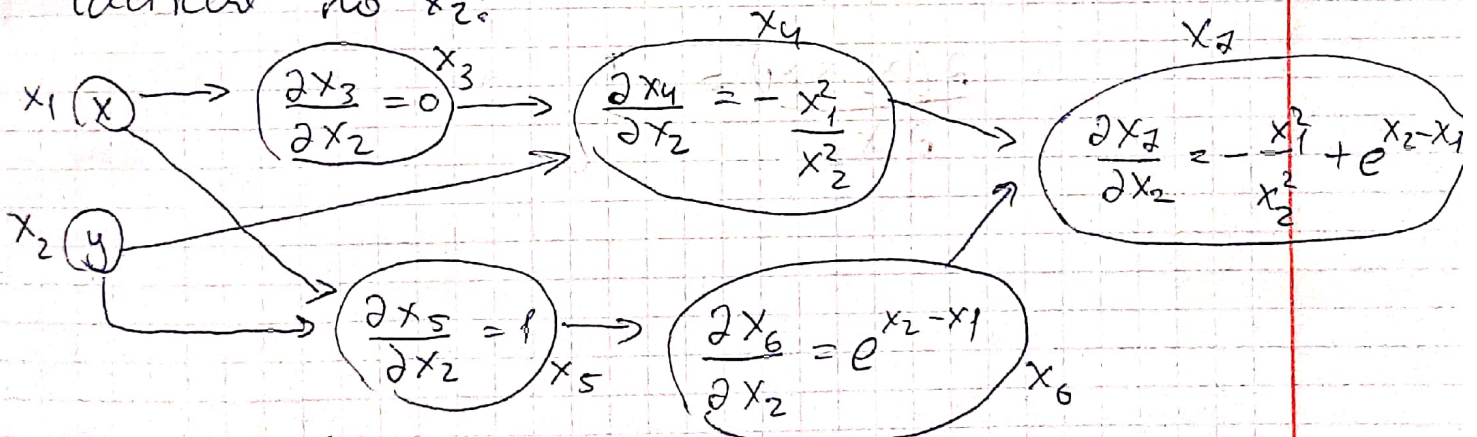 по x₂.
x₁ (x) → ∂x₃/∂x₂ = 0 x₃
∂x₄/∂x₂ = - x₁²/x₂² x₄
∂x₇/∂x₂ = - x₁²/x₂² + e^(x₂-x₁) x₇
x₂ (y)
∂x₅/∂x₂ = 1 x₅
∂x₆/∂x₂ = e^(x₂-x₁) x₆